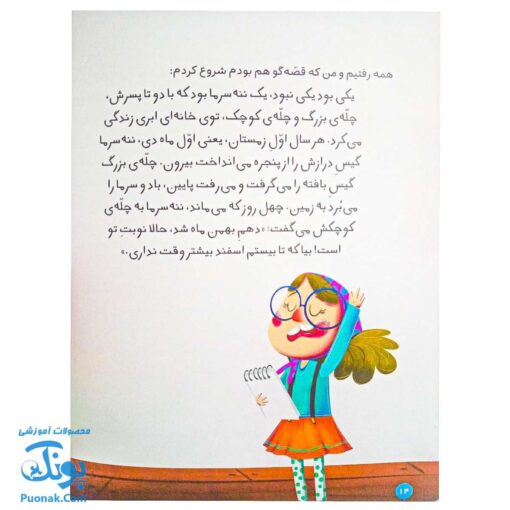 همه رفتیم و من که قصّه‌گو هم بودم شروع کردم:
یکی بود یکی نبود، یک ننه‌سرما بود که با دو تا پسرش،
چلّه‌ی بزرگ و چلّه‌ی کوچک، توی خانه‌ای ابری زندگی
می‌کرد. هر سال اوّل زمستان، یعنی اوّل ماه دی، ننه‌سرما
گیسِ درازش را از پنجره می‌انداخت بیرون. چلّه‌ی بزرگ
گیسِ بافته را می‌گرفت و می‌رفت پایین، باد و سرما را
می‌بُرد به زمین. چهل روز که می‌ماند، ننه‌سرما به چلّه‌ی
کوچکش می‌گفت: «دهم بهمن ماه شد، حالا نوبتِ تو
است! بیا که تا بیستم اسفند بیشتر وقت نداری.»
محصولات آموزشی
پونک
Puonak.Com
۱۴